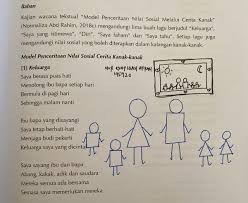 Bahan
Kajian warcana tekstual "Model Penceritaan Nilai Sosial Melalui Cerita Kanak"
(Najemaliza Abd Rahim, 2018c) mengandungi lima buah lagu berjudul "Keluarga",
"Saya yang Istimewa", "Diri", "Saya faham" dan "Saya tahu". Setiap lagu juga
mengandungi nilai sosial yang boleh diterapkan dalam kalangan kanak-kanak.
Model Penceritaan Nilai Sosial Cerita Kanak-kanak
(1) Keluarga
Saya berasa puas hati
Menolong ibu bapa setiap hari
Bermula di pagi hari
Sehingga malam nanti
Ibu bapa yang disayangi
Saya tetap berhati-hati
Menjaga budi pekerti
Keluarga saya yang dicintai
Saya sayang ibu dan bapa
Abang, kakak, adik dan saudara
Mereka semua ada bersama
Sentiasa saya memerlukan mereka